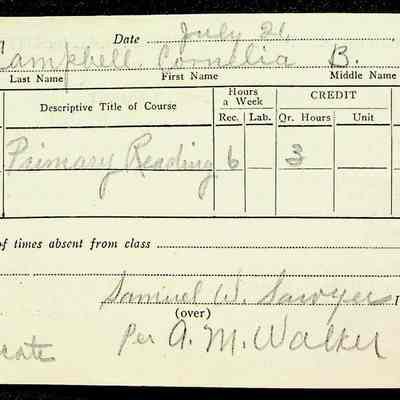 Date July 21,
Campbell, Cornelia B.
Last Name First Name Middle Name
Descriptive Title of Course Hours a Week CREDIT
Rec. Lab. Qr. Hours Unit
Primary Reading 6 3
of times absent from class
Samuel W. Sawyer I
(over)
Per A. M. Walker